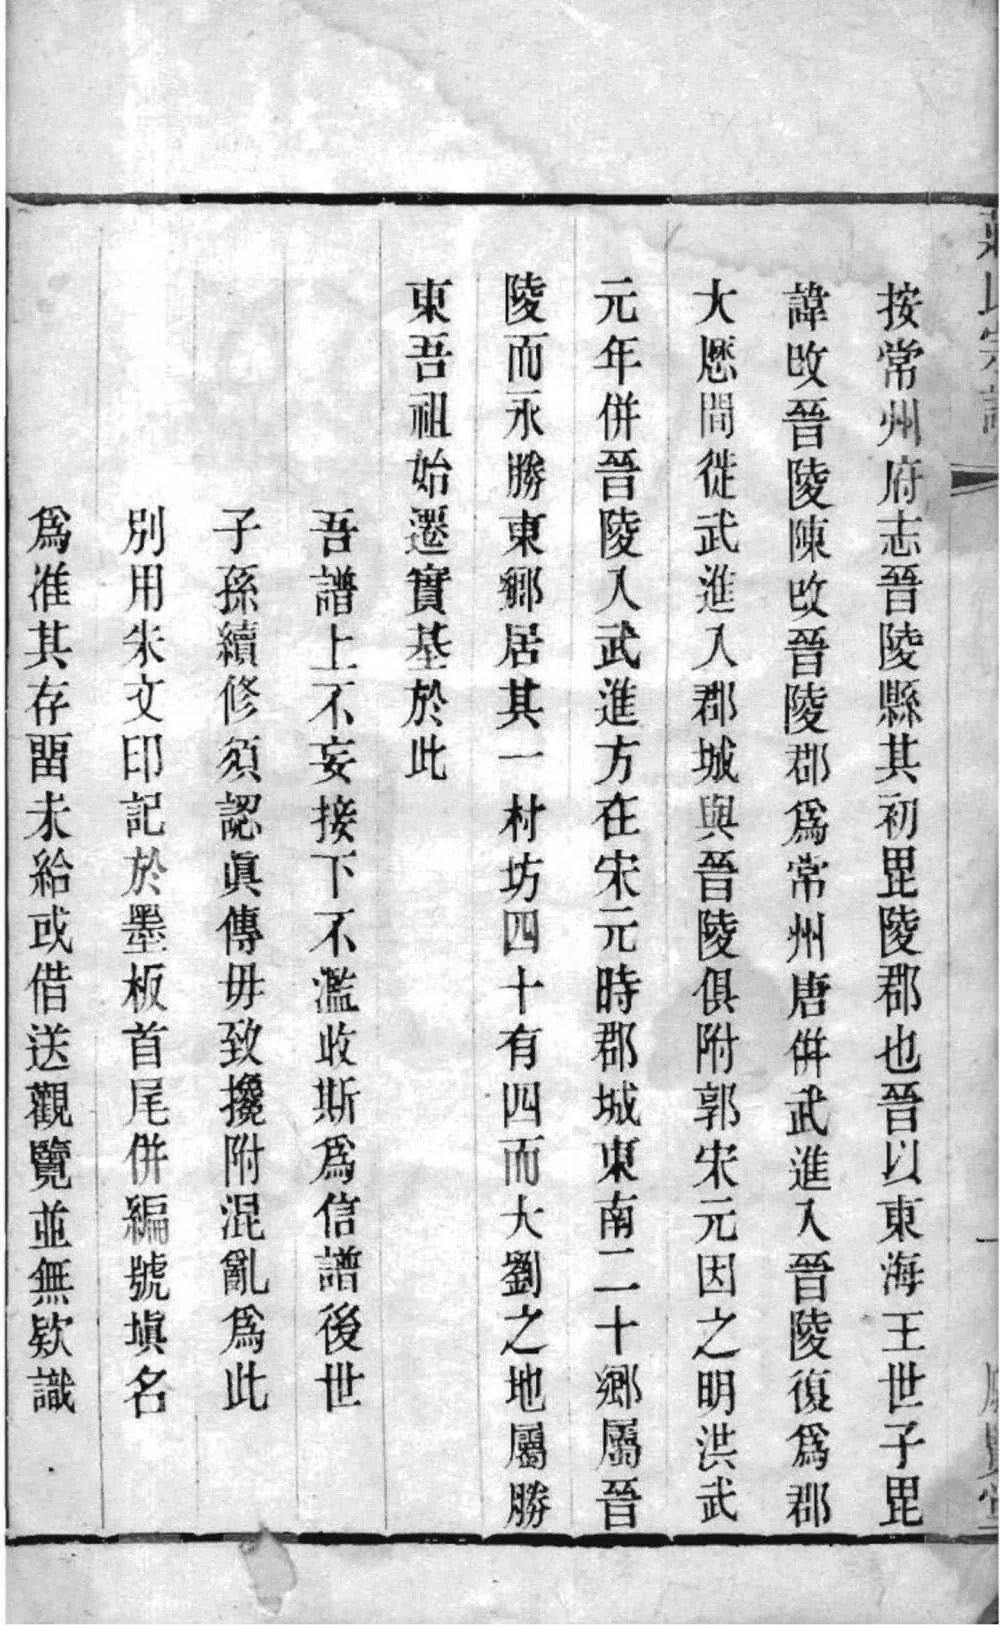 按常州府志晉陵縣其初毘陵郡也晉以東海王世子毘
諱改晉陵陳改晉陵郡爲常州唐併武進入晉陵復爲郡
大厯間徙武進入郡城與晉陵俱附郭宋元因之明洪武
元年併晉陵入武進方在宋元時郡城東南二十鄉屬晉
陵而永勝東鄉居其一村坊四十有四而大劉之地屬勝
東吾祖始遷實基於此
吾譜上不妄接下不濫收斯爲信譜後世
子孫續修須認眞傳毋致攙附混亂爲此
別用朱文印記於墨板首尾併編號塡名
爲准其存畱未給或借送觀覽並無欵識